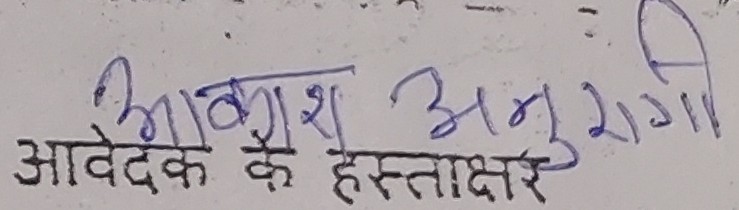 आकाश अनुरागी
आवेदक के हस्ताक्षर